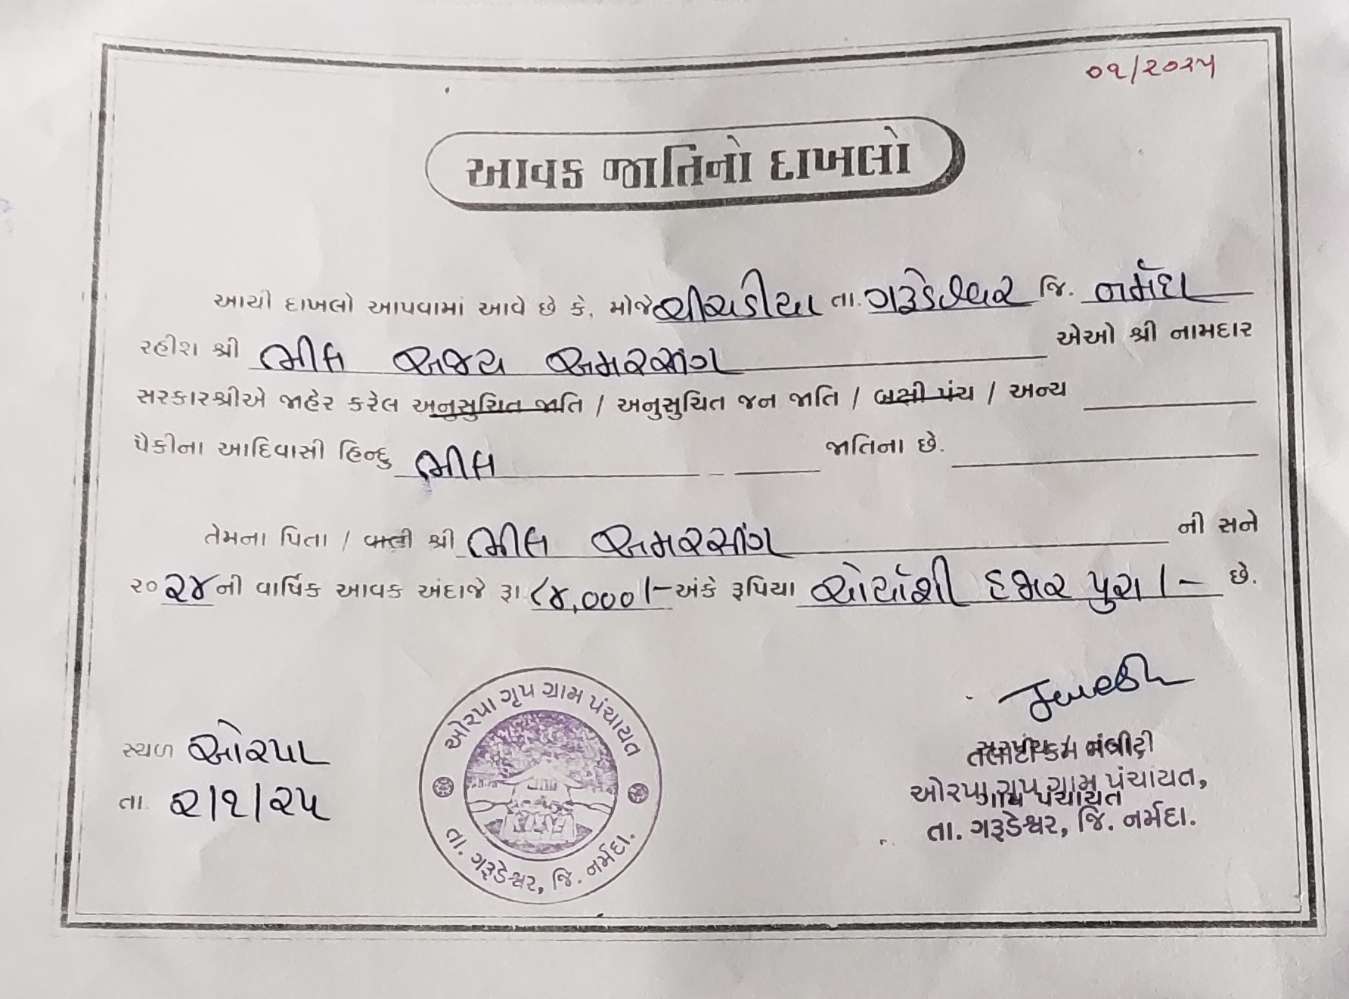 ૦૧/૨૦૨૫
આવક જાતિનો દાખલો
આથી દાખલો આપવામાં આવે છે કે, મોજે ચીચડીયા તા. ગરૂડેશ્વર જિ. નર્મદા
રહીશ શ્રી ભીલ અજય અમરસંગ એઓ શ્રી નામદાર
સરકારશ્રીએ જાહેર કરેલ અનુસુચિત જાતિ / અનુસુચિત જન જાતિ / બક્ષી પંચ / અન્ય
પૈકીના આદિવાસી હિન્દુ ભીલ જાતિના છે.
તેમના પિતા / વાલી શ્રી ભીલ અમરસંગ ની સને
૨૦૨૪ની વાર્ષિક આવક અંદાજે રૂા. ૮૪,૦૦૦/- અંકે રૂપિયા ચોર્યાશી હજાર પુરા/- છે.
સ્થળ ઓરપા
તા. ૨/૧/૨૫
ઓરપા ગૃપ ગ્રામ પંચાયત
તા. ગરૂડેશ્વર, જિ. નર્મદા.
તલાટી કમ મંત્રી
ઓરપા ગૃપ ગ્રામ પંચાયત,
ગ્રામ પંચાયત
તા. ગરૂડેશ્વર, જિ. નર્મદા.